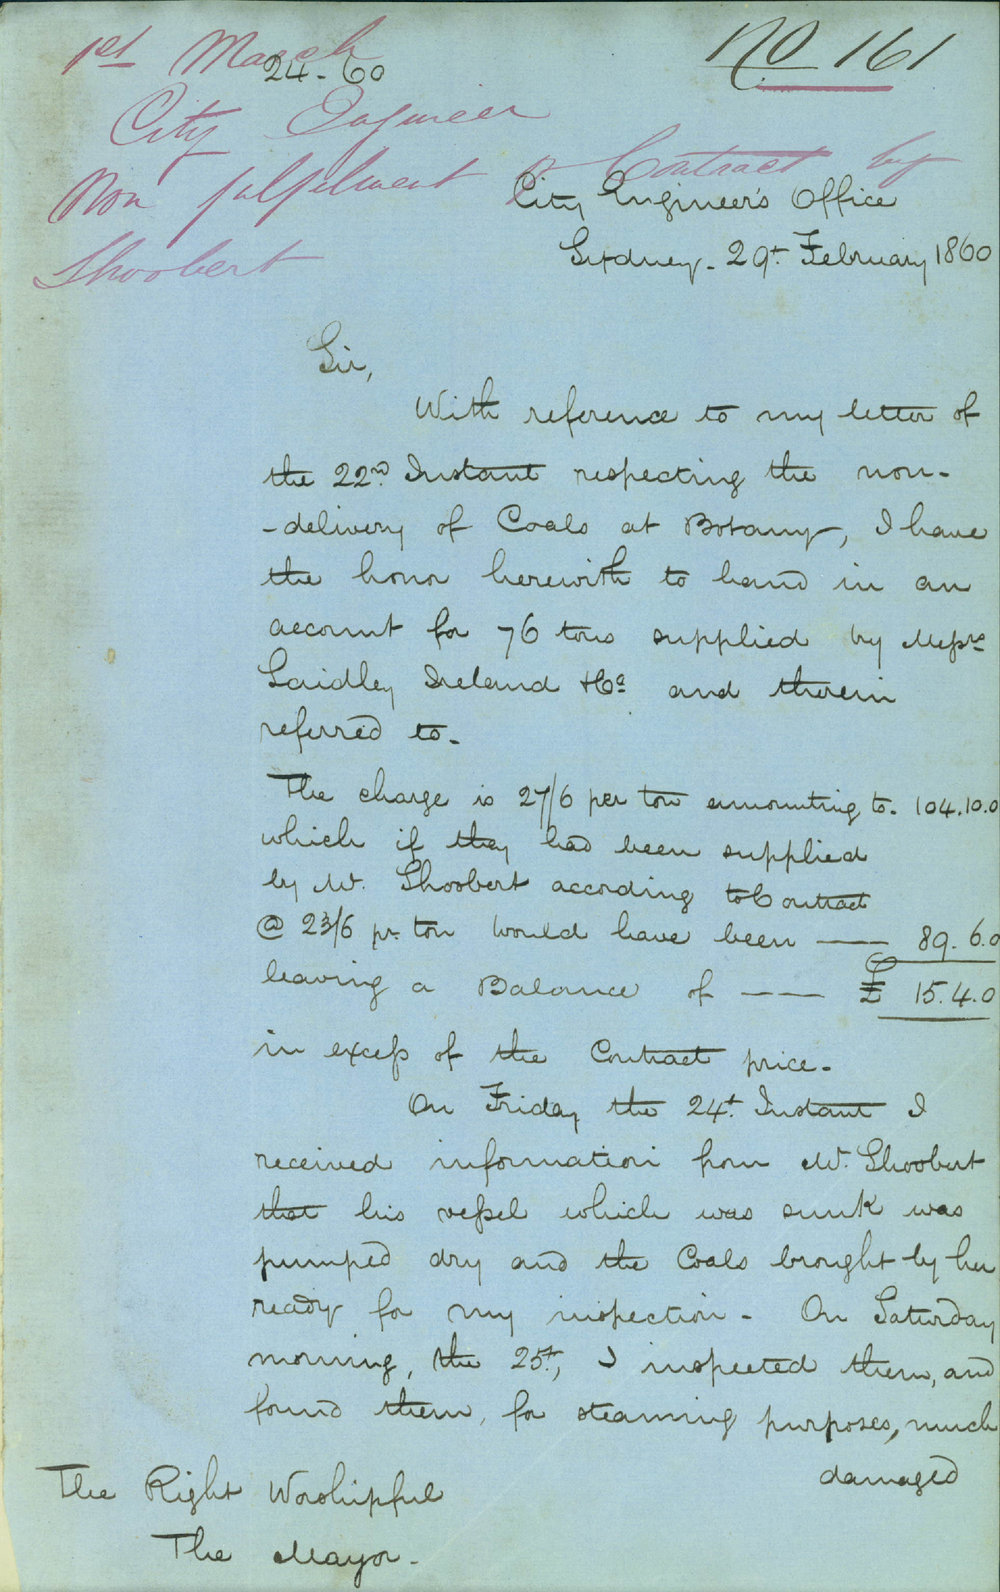 1st March
24-60
No 161
City Engineer
Non fulfilment o Contract by
Shoobert
City Engineer's Office
Sydney - 29t. February 1860
Sir,
With reference to my letter of
the 22nd. Instant respecting the non-
-delivery of Coals at Botany, I have
the honor herewith to hand in an
account for 76 tons supplied by Messrs
Laidley Ireland & Co and therein
referred to -
The charge is 27/6 per ton amounting to - 104.10.0
which if they had been supplied
by Mr. Shoobert according to Contract
@ 23/6 pr. ton would have been —— 89. 6.0
leaving a Balance of — — £ 15.4.0
in excess of the Contract price -
On Friday the 24t. Instant I
received information from Mr. Shoobert
that his vessel which was sunk was
pumped dry and the Coals brought by her
ready for my inspection - On Saturday
morning, the 25t, I inspected them, and
found them, for steaming purposes, much
damaged
The Right Worshipful
The Mayor -